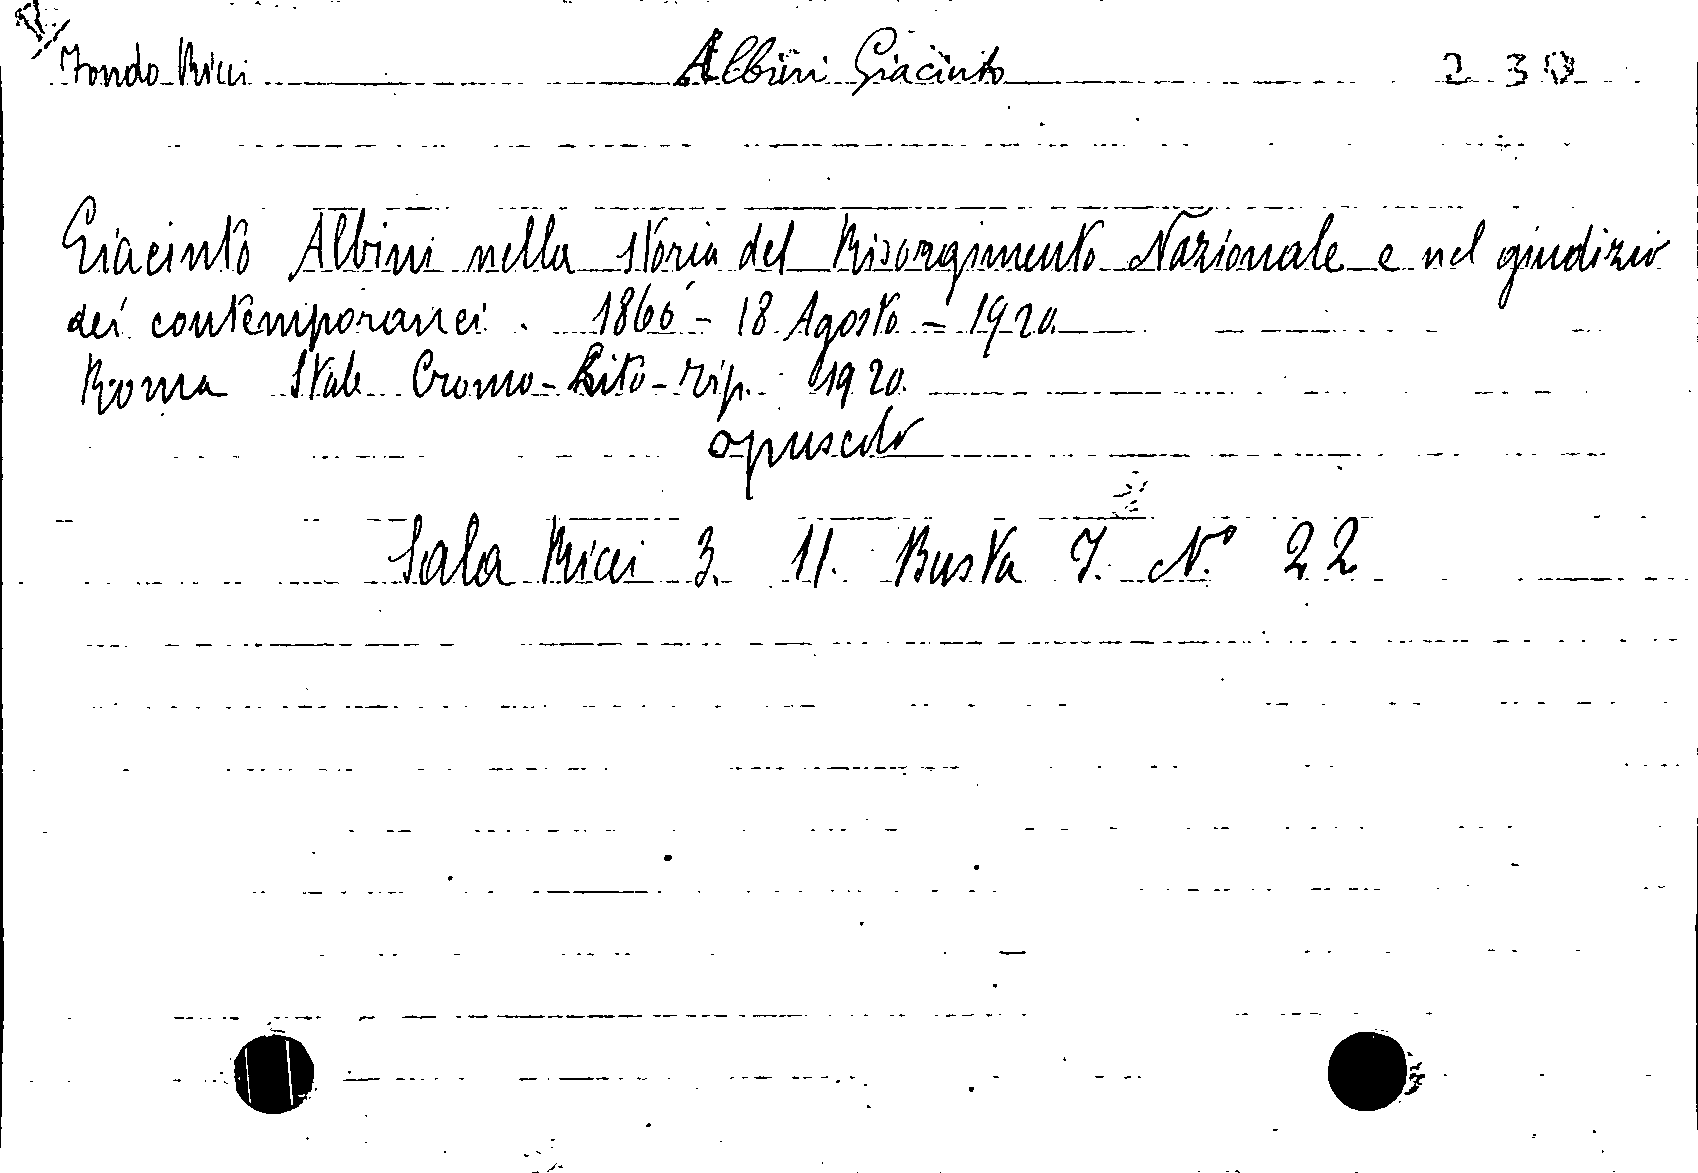 Fondo Ricci Albini Giacinto 230
Giacinto Albini nella storia del Risorgimento Nazionale e nel giudizio
dei contemporanei. 1860 - 18 Agosto - 1920
Roma Stab. Cromo-Lito-Tip. 1920.
opuscolo
Sala Ricci 3. 11. Busta I. N.° 22